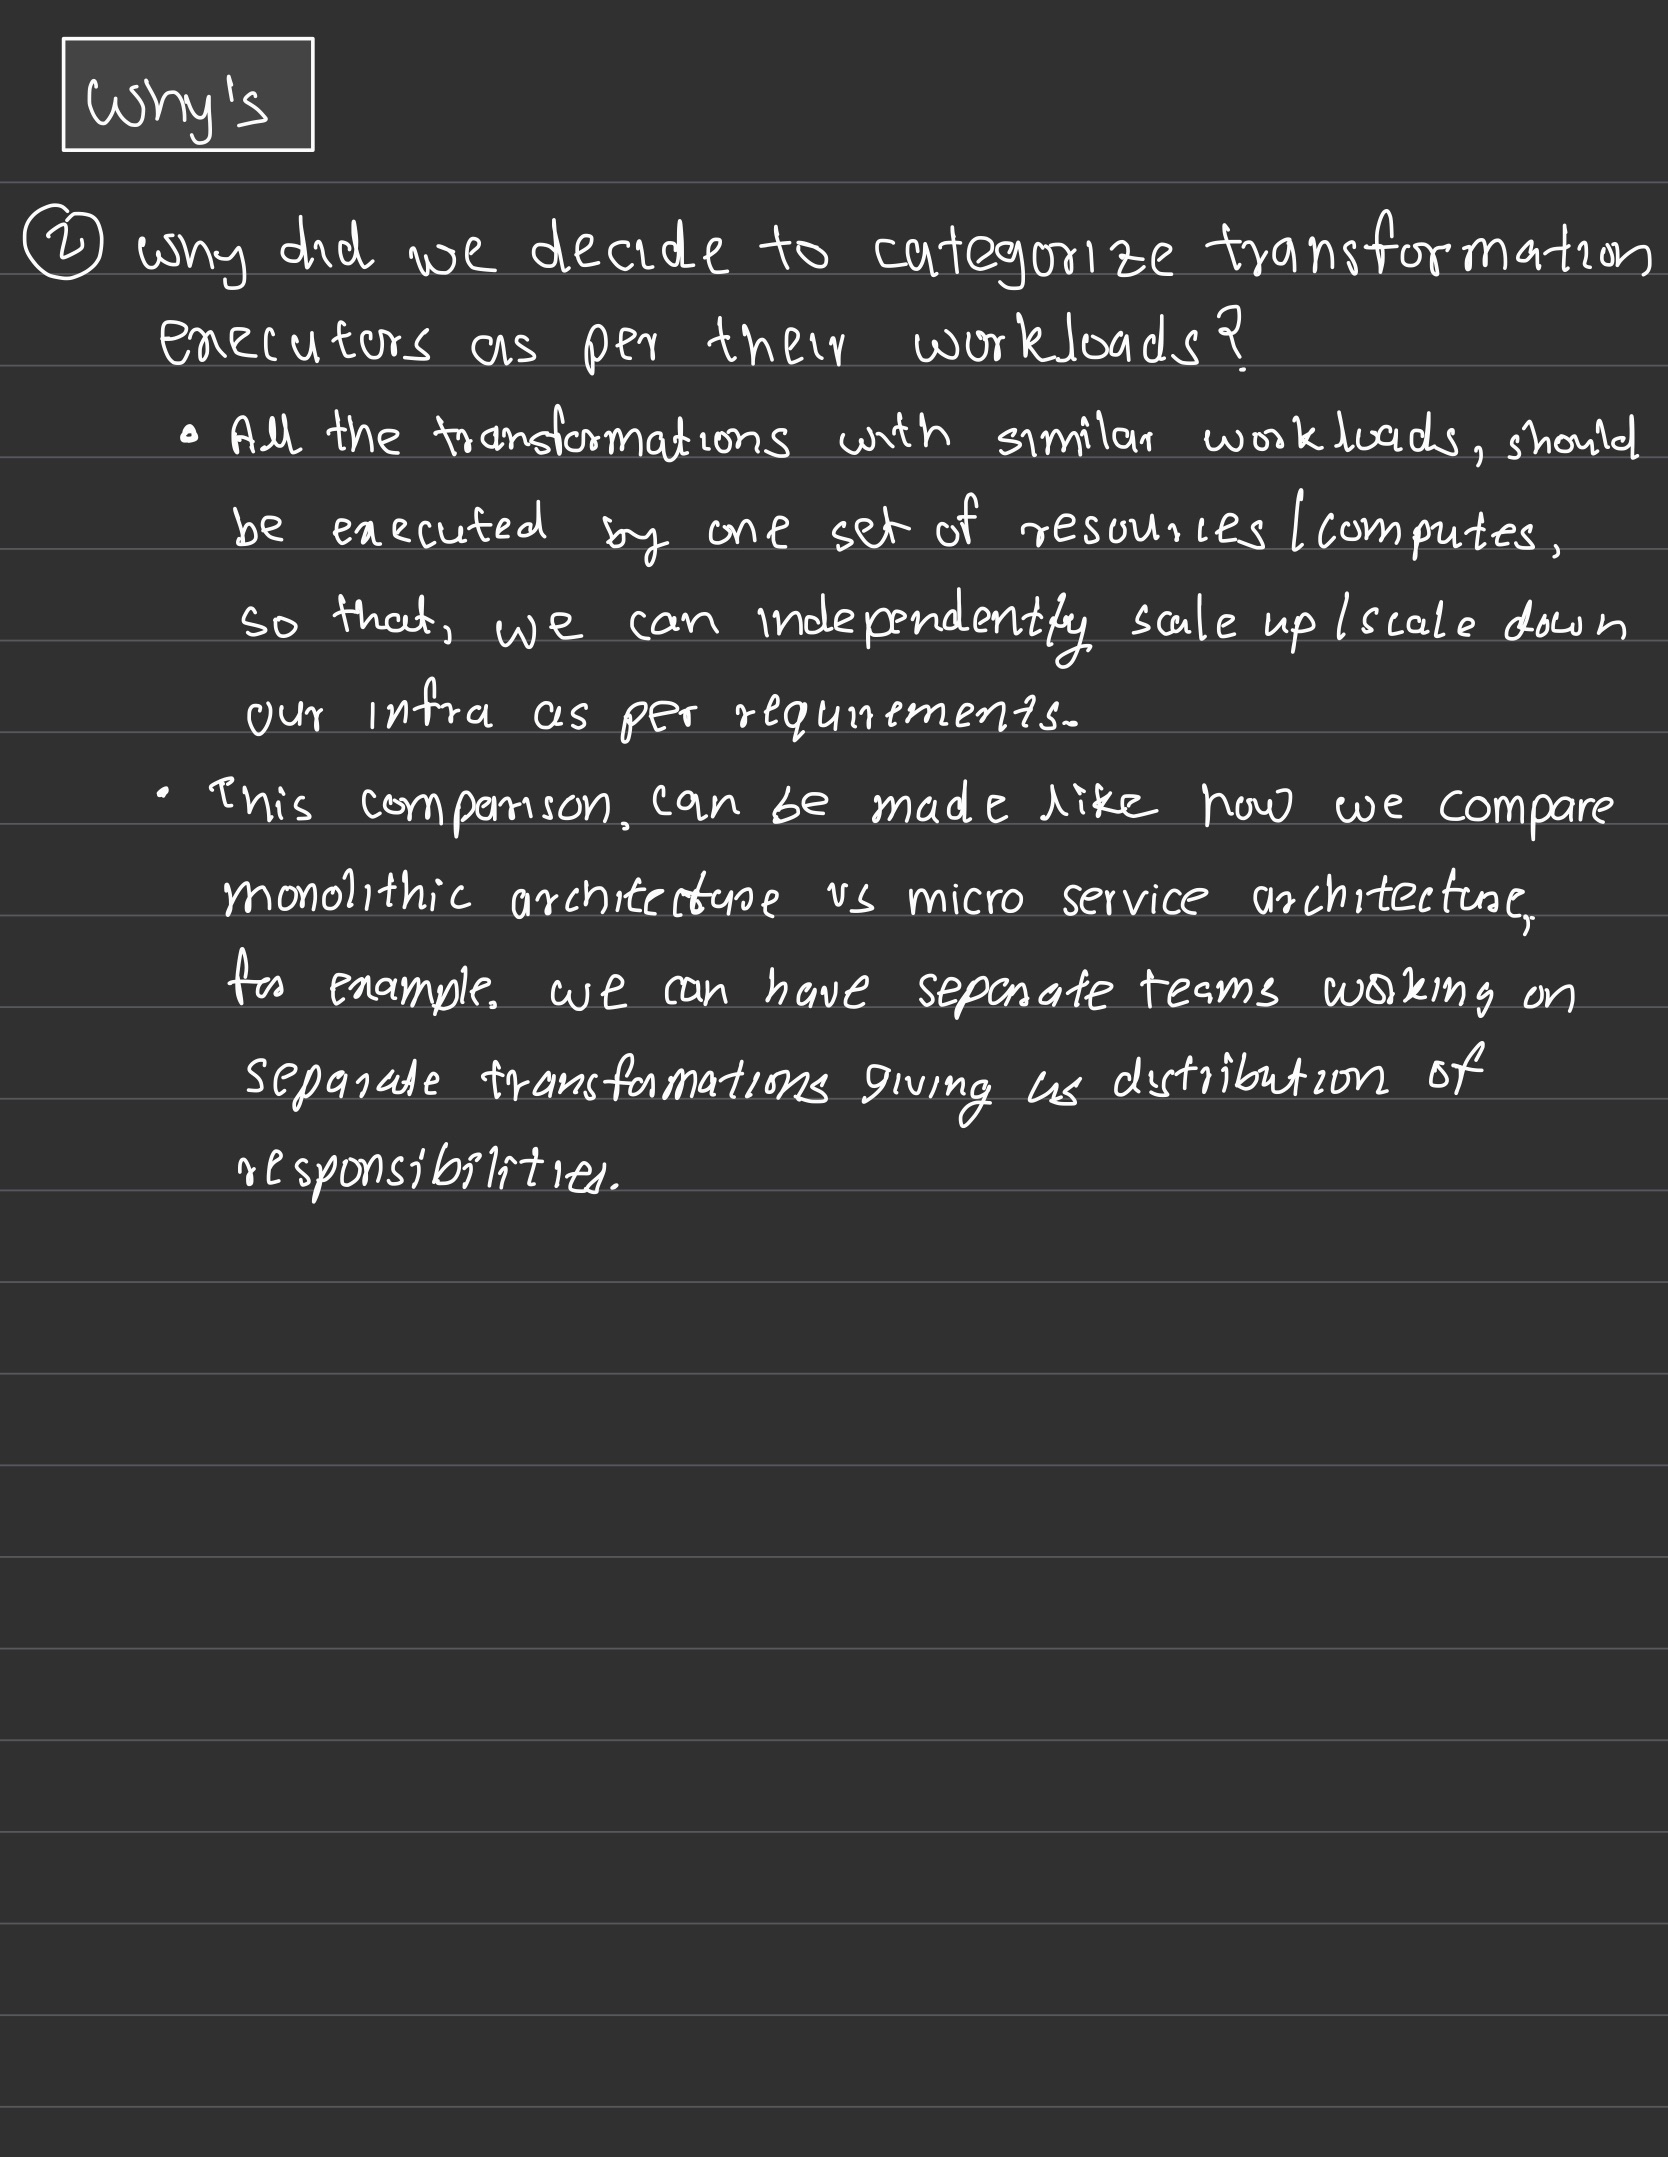 Why's
② Why did we decide to categorize transformation
executors as per their workloads?
• All the transformations with similar workloads, should
be executed by one set of resources/computes,
so that, we can independently scale up/scale down
our infra as per requirements.
• This comparison, can be made like how we compare
monolithic architecture vs micro service architecture,
for example, we can have separate teams working on
separate transformations giving us distribution of
responsibilities.